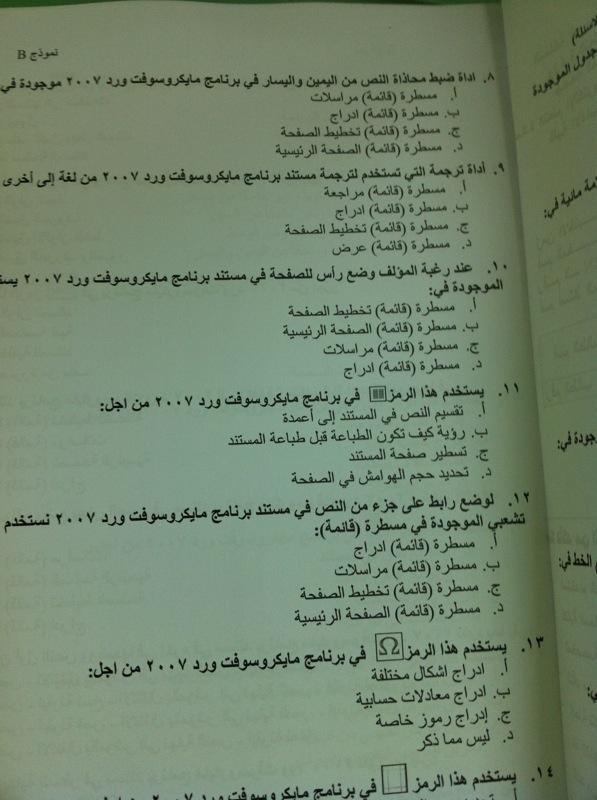 نموذج B
٨. اداة ضبط محاذاة النص من اليمين واليسار في برنامج مايكروسوفت ورد ٢٠٠٧ موجودة في
أ. مسطرة (قائمة) مراسلات
ب. مسطرة (قائمة) ادراج
ج. مسطرة (قائمة) تخطيط الصفحة
د. مسطرة (قائمة) الصفحة الرئيسية
٩. أداة ترجمة التي تستخدم لترجمة مستند برنامج مايكروسوفت ورد ٢٠٠٧ من لغة إلى أخرى
أ. مسطرة (قائمة) مراجعة
ب. مسطرة (قائمة) ادراج
ج. مسطرة (قائمة) تخطيط الصفحة
د. مسطرة (قائمة) عرض
١٠. عند رغبة المؤلف وضع رأس للصفحة في مستند برنامج مايكروسوفت ورد ٢٠٠٧
الموجودة في:
أ. مسطرة (قائمة) تخطيط الصفحة
ب. مسطرة (قائمة) الصفحة الرئيسية
ج. مسطرة (قائمة) مراسلات
د. مسطرة (قائمة) ادراج
١١. يستخدم هذا الرمز في برنامج مايكروسوفت ورد ٢٠٠٧ من اجل:
أ. تقسيم النص في المستند إلى أعمدة
ب. رؤية كيف تكون الطباعة قبل طباعة المستند
ج. تسطير صفحة المستند
د. تحديد حجم الهوامش في الصفحة
١٢. لوضع رابط على جزء من النص في مستند برنامج مايكروسوفت ورد ٢٠٠٧ نستخدم
تشعبي الموجودة في مسطرة (قائمة):
أ. مسطرة (قائمة) ادراج
ب. مسطرة (قائمة) مراسلات
ج. مسطرة (قائمة) تخطيط الصفحة
د. مسطرة (قائمة) الصفحة الرئيسية
١٣. يستخدم هذا الرمز Ω في برنامج مايكروسوفت ورد ٢٠٠٧ من اجل:
أ. ادراج اشكال مختلفة
ب. ادراج معادلات حسابية
ج. إدراج رموز خاصة
د. ليس مما ذكر
١٤. يستخدم هذا الرمز في برنامج مايكروسوفت ورد ٢٠٠٧
جدول الموجودة
مة مائية في:
جودة في:
الخط في: